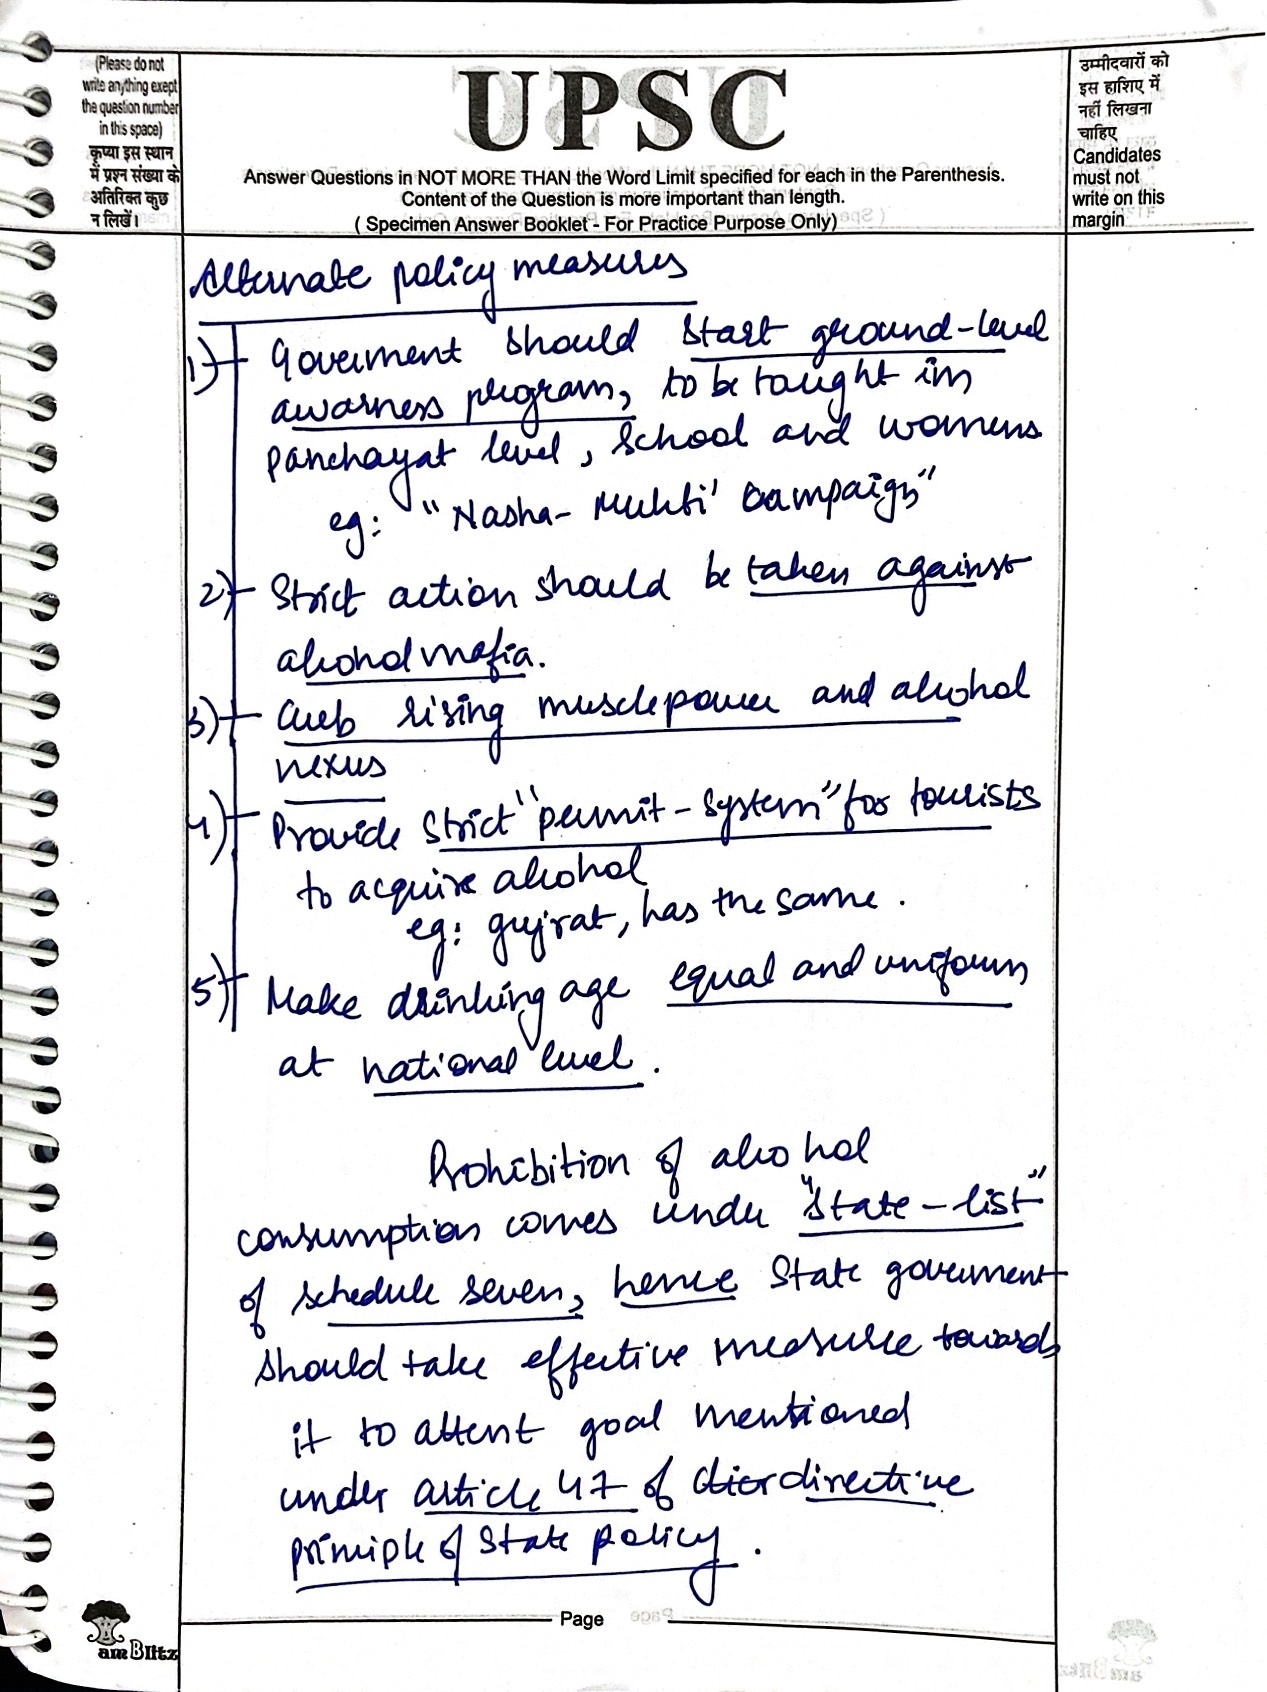 (Please do not
write anything exept
the question number
in this space)
कृप्या इस स्थान
में प्रश्न संख्या के
अतिरिक्त कुछ
न लिखें।
UPSC
Answer Questions in NOT MORE THAN the Word Limit specified for each in the Parenthesis.
Content of the Question is more important than length.
( Specimen Answer Booklet - For Practice Purpose Only)
उम्मीदवारों को
इस हाशिए में
नहीं लिखना
चाहिए
Candidates
must not
write on this
margin
Alternate policy measures
1) Government should start ground-level
awarness program, to be taught in
panchayat level, school and womens
eg: "Nasha-Mukti' Campaign"
2) Strict action should be taken against
alcohol mafia.
3) Curb rising muscle power and alcohol
nexus
4) Provide strict "permit-system" for tourists
to acquire alcohol
eg: gujrat, has the same.
5) Make drinking age equal and uniform
at national level.
Prohibition of alcohol
consumption comes under "State-list"
of schedule seven, hence State government
should take effective measure towards
it to attent goal mentioned
under article 47 of directive
principle of State policy.
Page
am Blitz